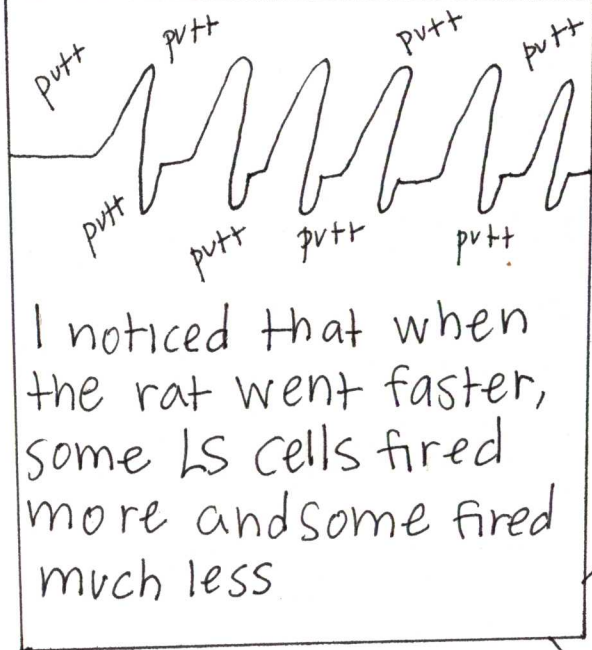 putt
putt
putt
putt
putt
putt
putt
putt
I noticed that when
the rat went faster,
some LS cells fired
more and some fired
much less